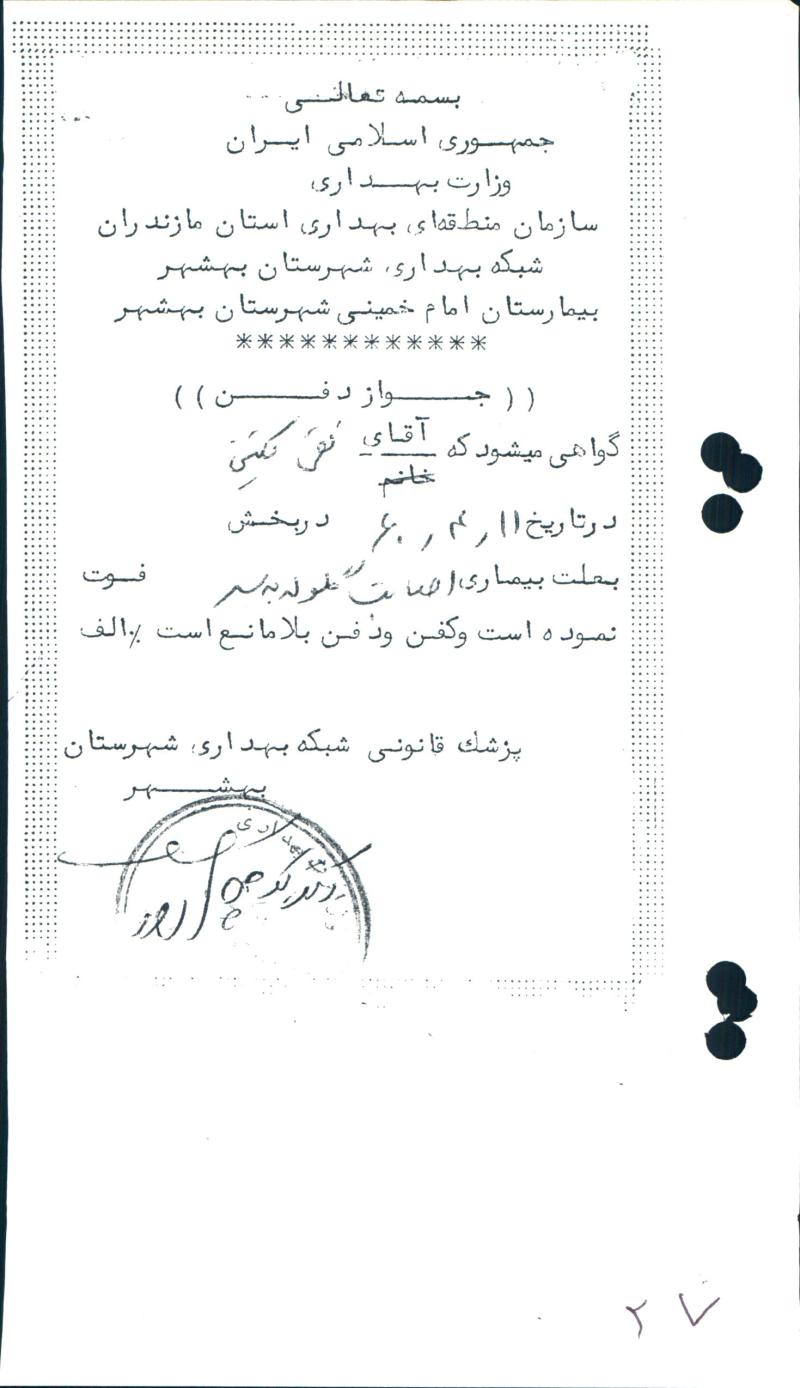 بسمه تعالی
جمهوری اسلامی ایران
وزارت بهداری
سازمان منطقه‌ای بهداری استان مازندران
شبکه بهداری شهرستان بهشهر
بیمارستان امام خمینی شهرستان بهشهر
************
(( جواز دفن ))
گواهی میشود که آقای
خانم
درتاریخ ۱۱ ر ۴ ر ۶۰ دربخش
بعلت بیماری اصابت گلوله به سر فوت
نموده است وکفن ودفن بلامانع است ٪الف
پزشك قانونی شبکه بهداری شهرستان
بهشهر
۲۷